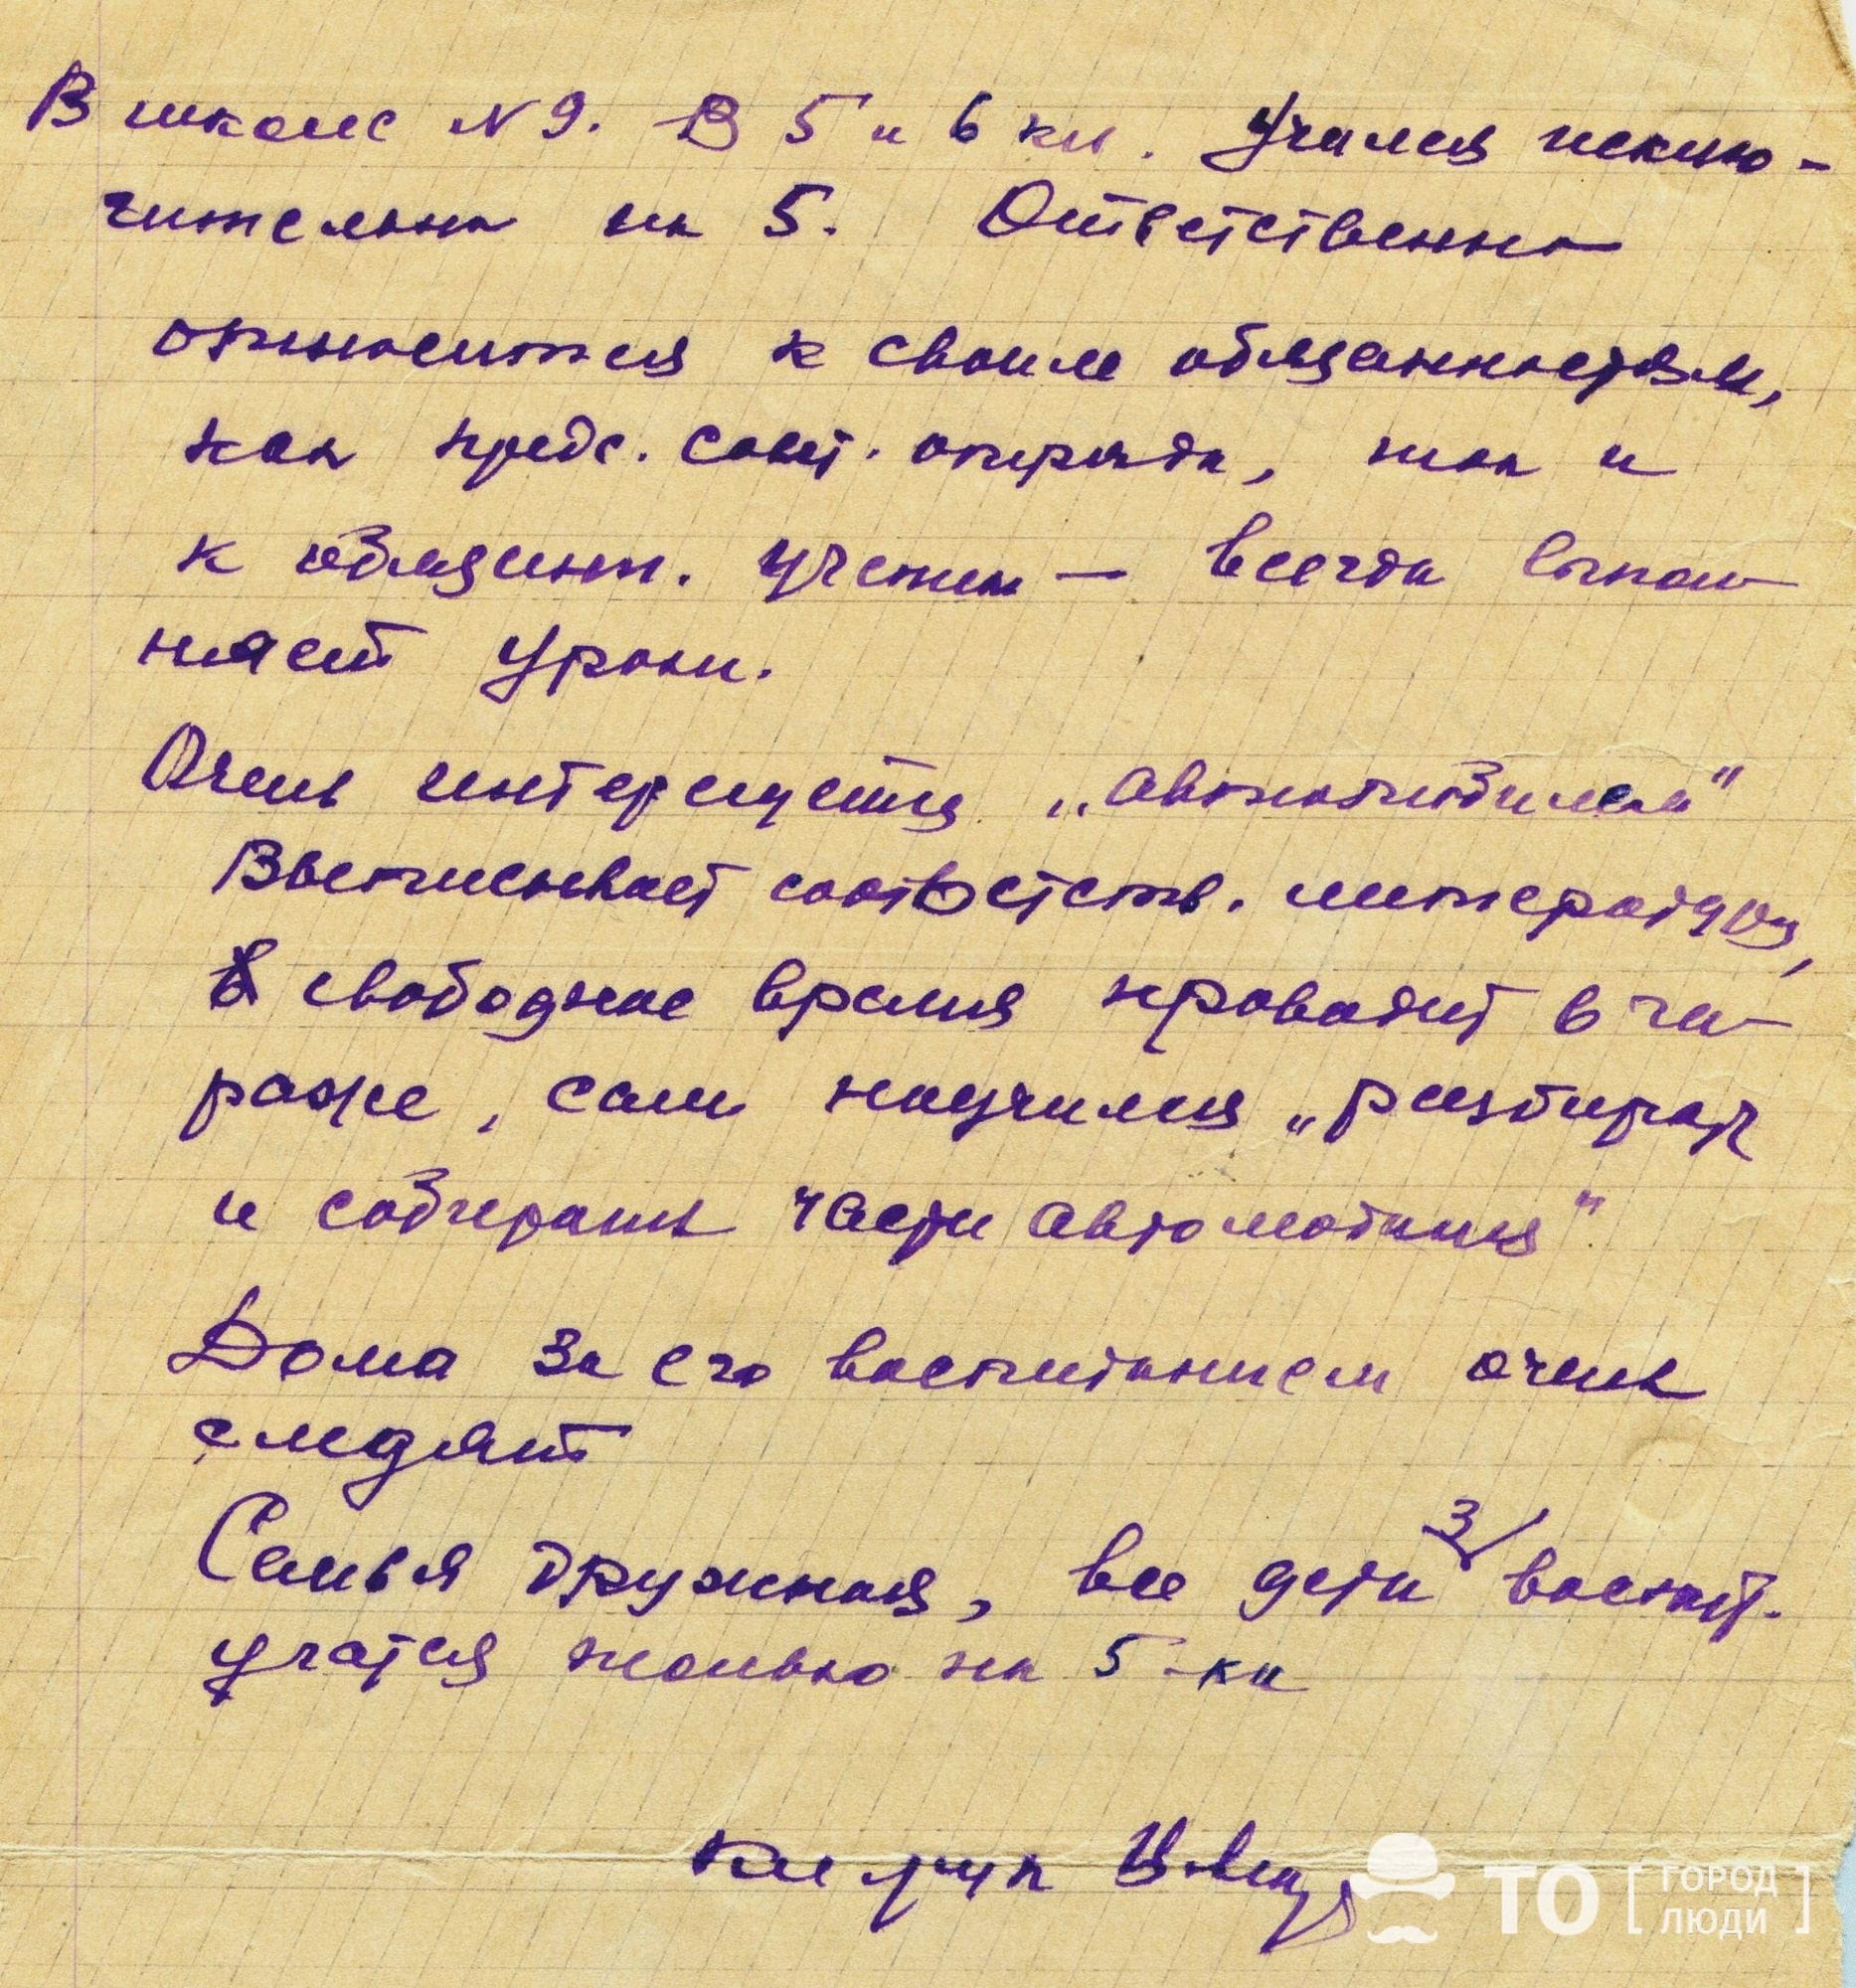 В школе N 9. В 5 и 6 кл. Учился исклю-
чительно на 5. Ответственно
относится к своим обязанностям,
как предс. совет. отряда, так и
к обязанн. учения — всегда выпол-
няет уроки.
Очень интересуется „автомобилем"
Выписывает соответств. литературу,
В свободное время проводит в га-
раже, сам научился „разбирать
и собирать части автомобиля"
Дома за его воспитанием очень
следят
Семья дружная, все дети 3/ воспит.
учатся только на 5-ки
Кл. рук.
ТО [ГОРОД ЛЮДИ]